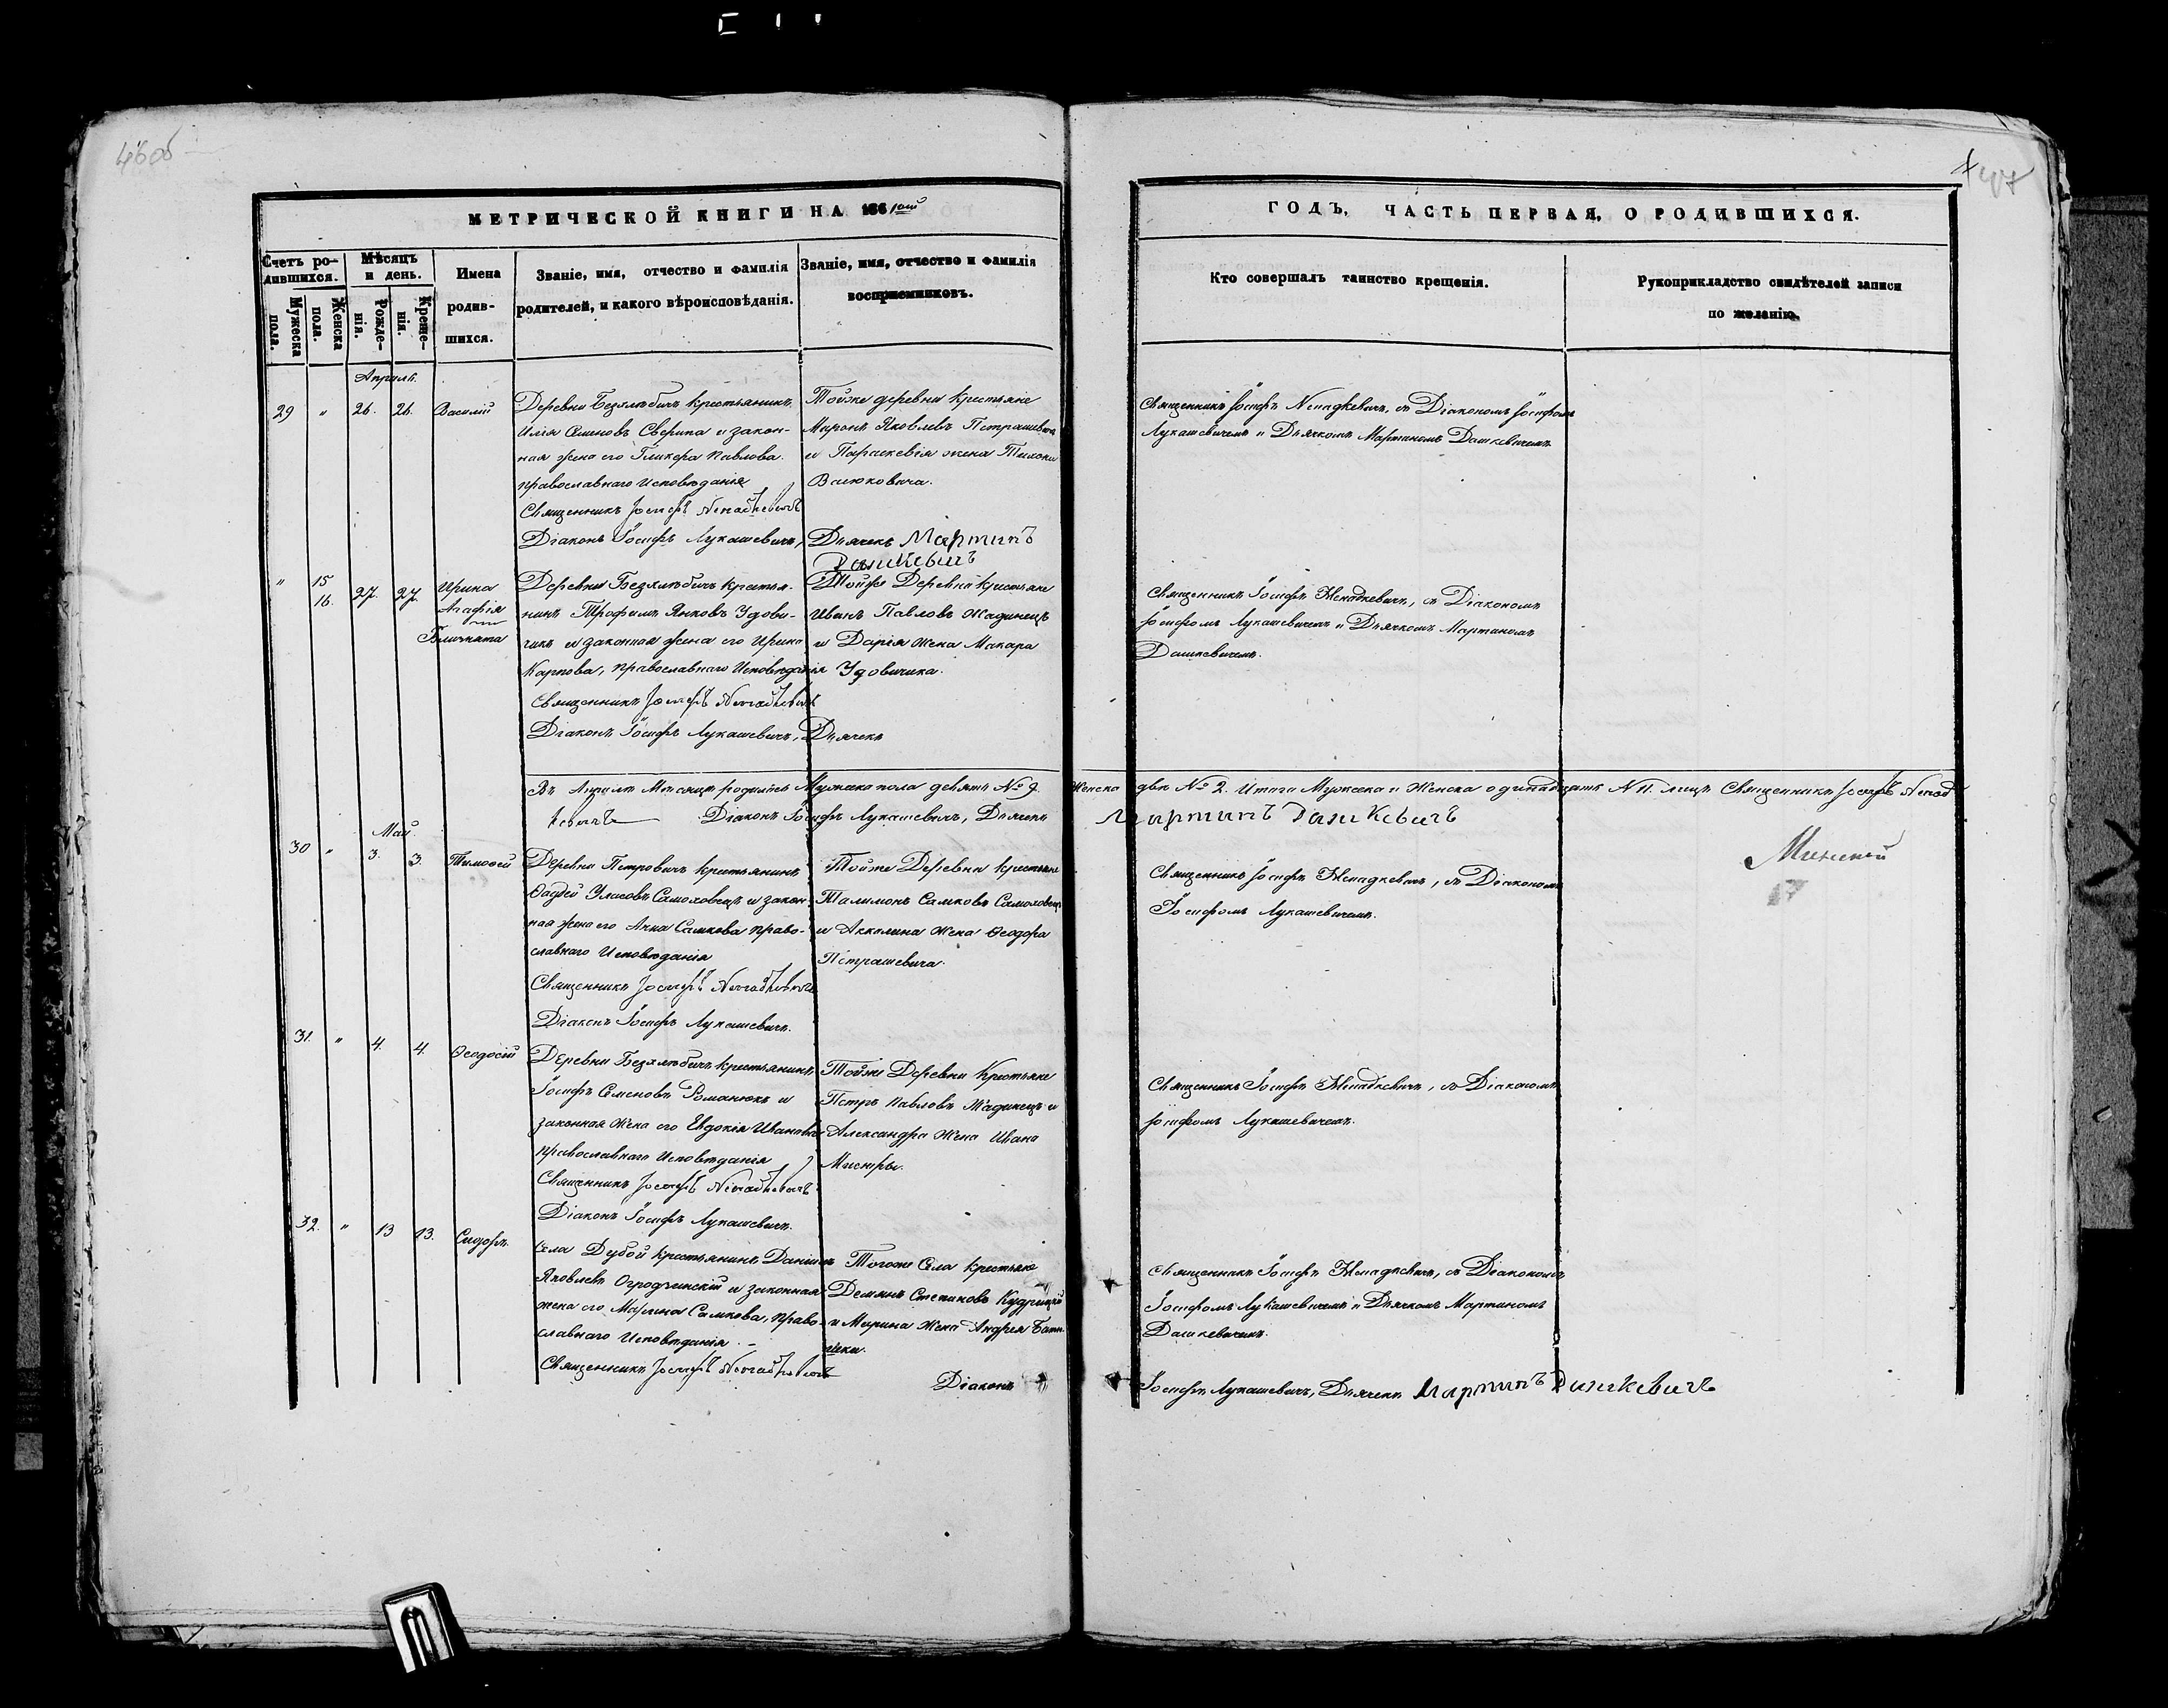 46об
47
МЕТРИЧЕСКОЙ КНИГИ НА 1861ый
ГОДЪ, ЧАСТЬ ПЕРВАЯ, О РОДИВШИХСЯ.
Счетъ ро-
дившихся.
Мужеска
пола.
Женска
пола.
Мѣсяцъ
и день.
Рожде-
нія.
Креще-
нія.
Имена
родив-
шихся.
Званіе, имя, отчество и фамилія
родителей, и какого вѣроисповѣданія.
Званіе, имя, отчество и фамилія
воспріемниковъ.
Кто совершалъ таинство крещенія.
Рукоприкладство свидѣтелей записи
по желанію.
Апрѣль.
29 " 26. 26. Василій
Деревни Безлѣбичъ крестьянинъ
Илія Семеновъ Сверипа и закон-
ная жена его Гликера Павлова.
православнаго Исповѣданія
Священникъ Іосифъ Ненадкевичъ
Діаконъ Іосифъ Лукашевичъ,
Тойже деревни крестьяне
Миронъ Яковлевъ Петрашевичъ
и Параскевія жена Тихона
Васюковича.
Дьячекъ Мартинъ
Дашкевичъ
Священникъ Іосифъ Ненадкевичъ, съ Діакономъ Іосифомъ
Лукашевичемъ и Дьячкомъ Мартиномъ Дашкевичемъ
" 15 16. 27. 27. Ирина
Агафія
Близнята
Деревни Безлѣбичъ крестья-
нинъ Трофимъ Янковъ Удови-
чикъ и законная жена его Ирина
Карпова, православнаго Исповѣданія
Священникъ Іосифъ Ненадкевичъ
Діаконъ Іосифъ Лукашевичъ, Дьячекъ
Тойже Деревни крестьяне
Иванъ Павловъ Жадинецъ
и Дарія жена Макара
Удовичика.
Священникъ Іосифъ Ненадкевичъ, съ Діакономъ
Іосифомъ Лукашевичемъ и Дьячкомъ Мартиномъ
Дашкевичемъ.
Въ Апрѣлѣ Мѣсяцѣ родилось Мужеска пола девять №9. Женска двѣ №2. Итого Мужеска и Женска одинадцать №11. лицъ Священникъ Іосифъ Ненад
кевичъ Діаконъ Іосифъ Лукашевичъ, Дьячекъ Мартинъ Дашкевичъ
Май.
30 " 3. 3. Тимофей
Деревни Петровичъ крестьянинъ
Фадѣй Уласовъ Самоховецъ и закон-
ная жена его Анна Самкова право-
славнаго Исповѣданія
Священникъ Іосифъ Ненадкевичъ
Діаконъ Іосифъ Лукашевичъ.
Тойже Деревни крестьяне
Талимонъ Самковъ Самоховецъ
и Аккилина жена Ѳеодора
Петрашевича.
Священникъ Іосифъ Ненадкевичъ, съ Діакономъ
Іосифомъ Лукашевичемъ.
31. " 4. 4. Ѳеодосій
Деревни Безлѣбичъ крестьянинъ
Іосифъ Семеновъ Романюкъ и
законная жена его Евдокія Иванова
православнаго Исповѣданія
Священникъ Іосифъ Ненадкевичъ
Діаконъ Іосифъ Лукашевичъ.
Тойже Деревни Крестьяне
Петръ Павловъ Жадинецъ и
Александра жена Ивана
Мисюры.
Священникъ Іосифъ Ненадкевичъ, съ Діакономъ
Іосифомъ Лукашевичемъ.
32. " 13 13. Сидоръ.
Села Дубой крестьянинъ Даніилъ
Яковлевъ Огродчинскій и законная
жена его Марина Самкова, право-
славнаго Исповѣданія.
Священникъ Іосифъ Ненадкевичъ
Тогоже Села крестьяне
Демянъ Степановъ Кудрицкій
и Марина жена Андрея
Священникъ Іосифъ Ненадкевичъ, съ Діакономъ
Іосифомъ Лукашевичемъ и Дьячкомъ Мартиномъ
Дашкевичемъ.
Діаконъ Іосифъ Лукашевичъ, Дьячекъ Мартинъ Дашкевичъ